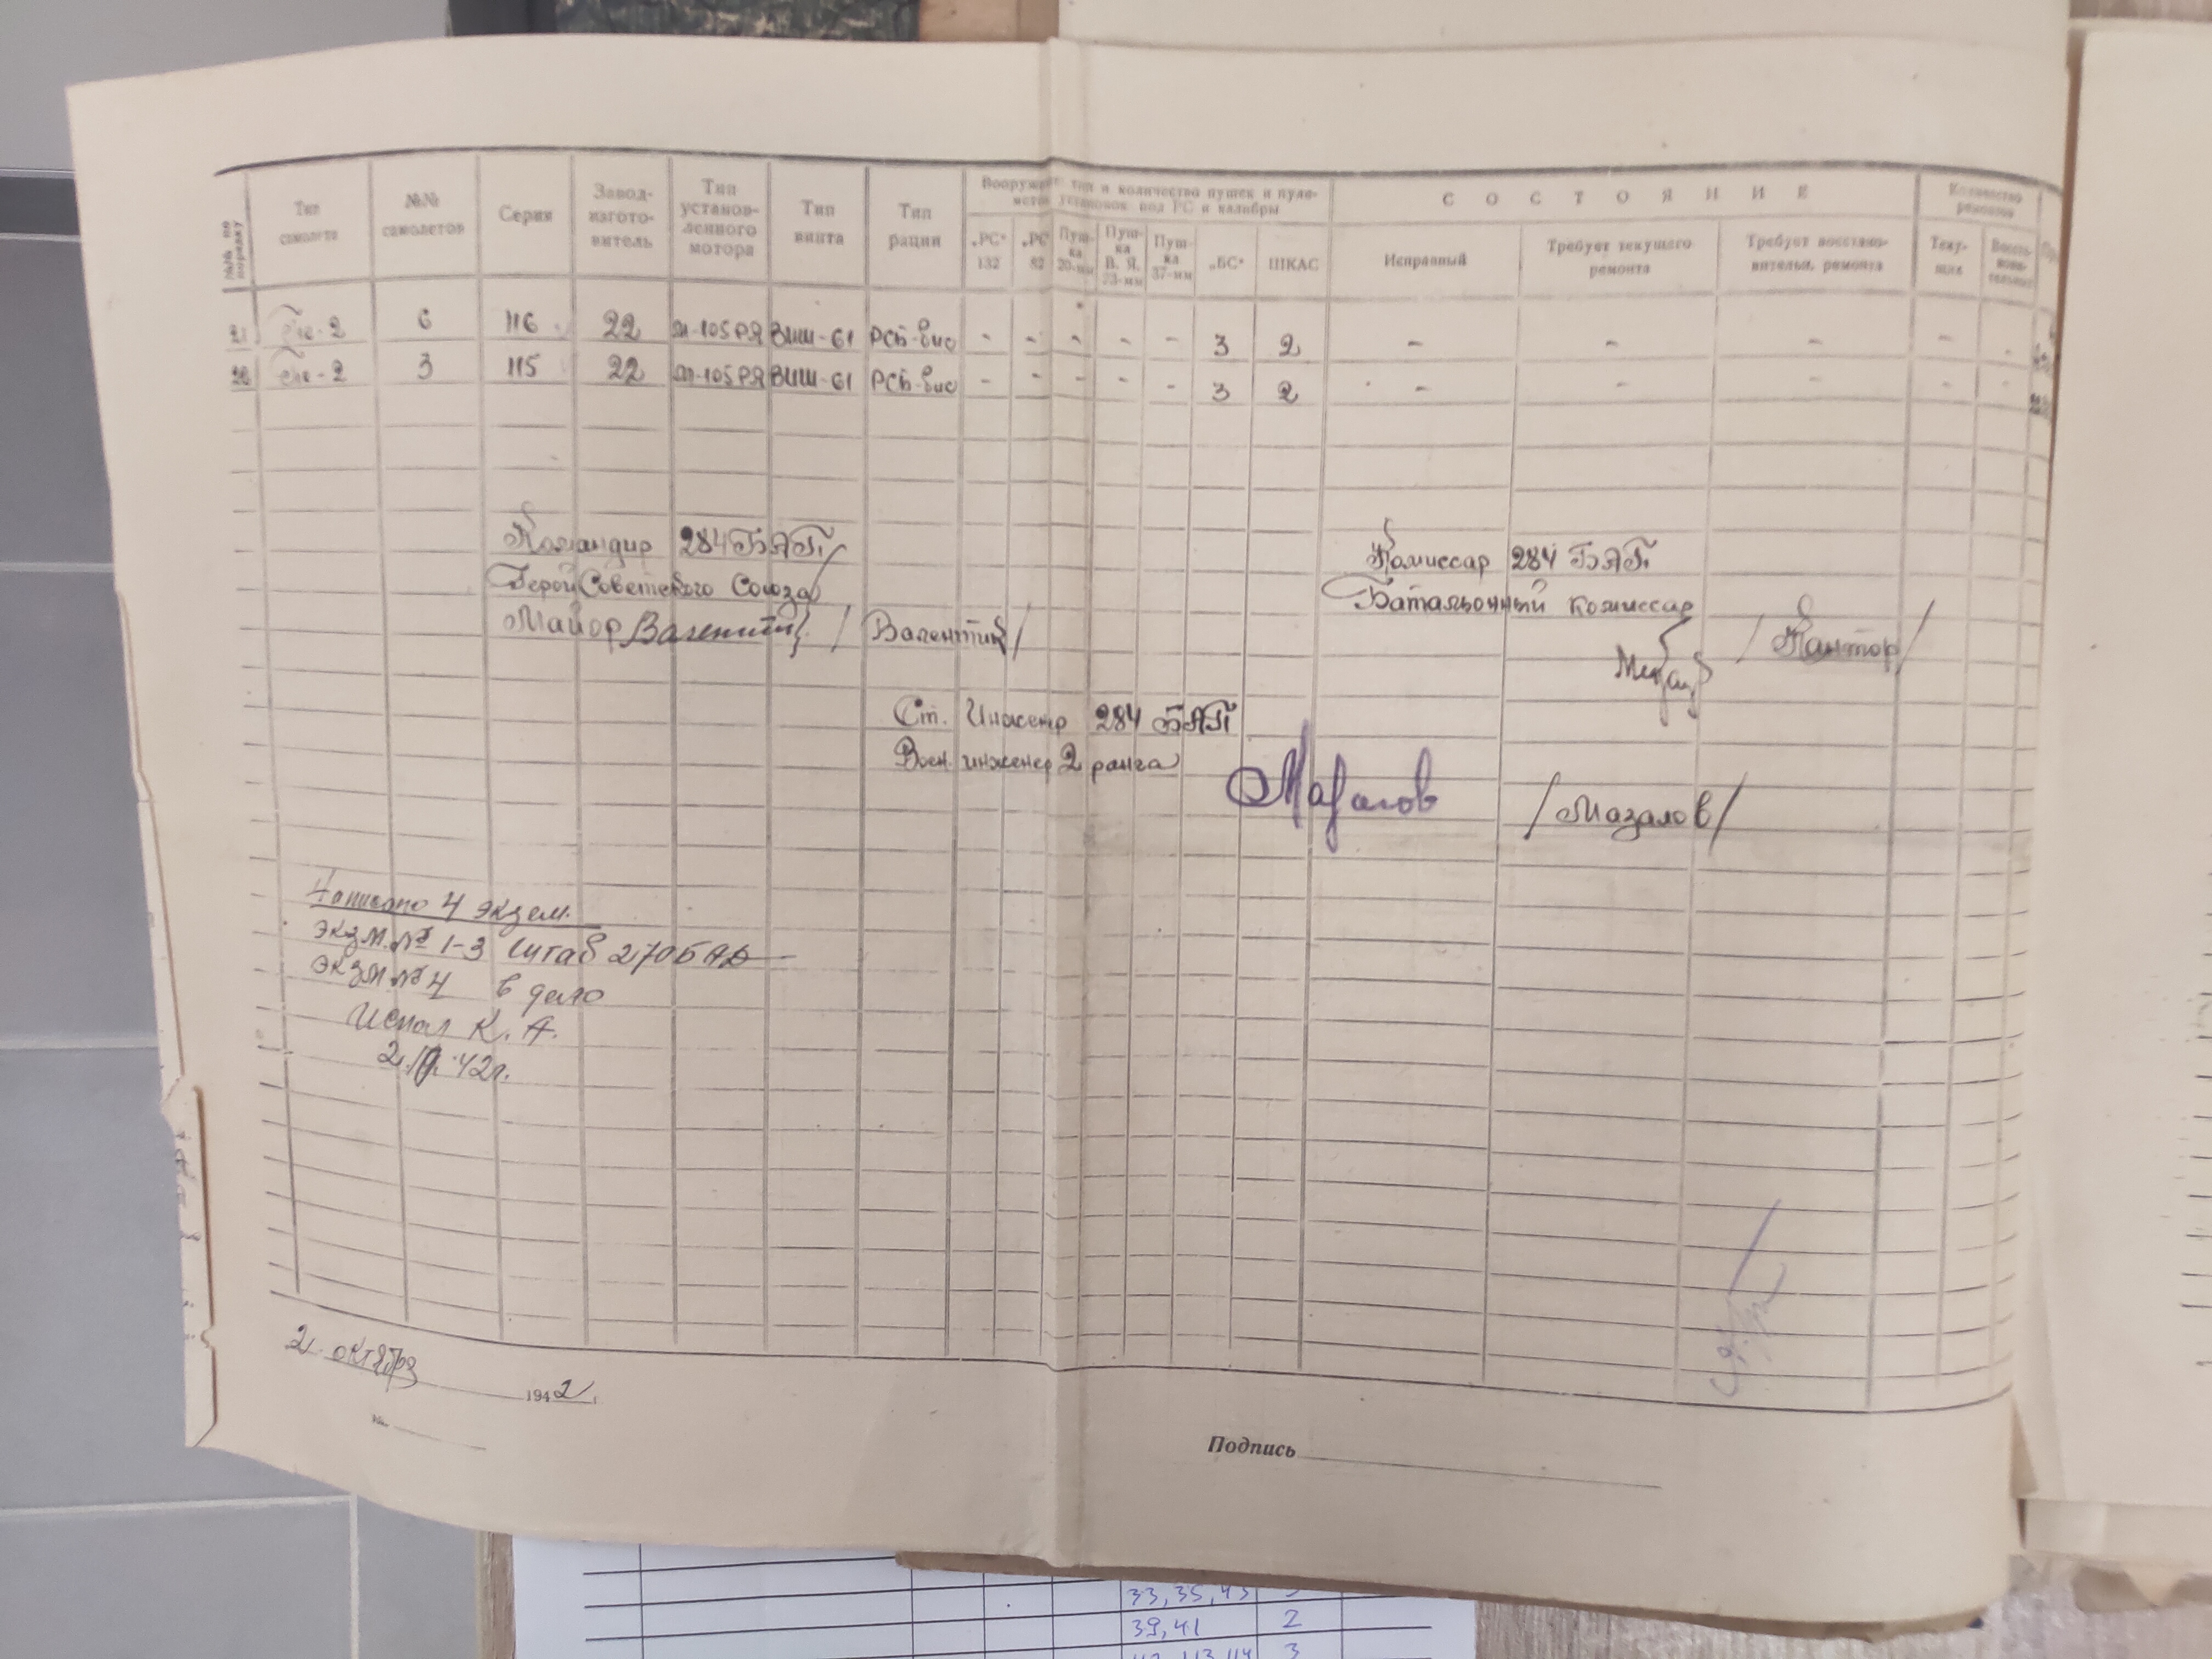 №№ по порядку
Тип самолета
№№ самолетов
Серия
Завод-изготовитель
Тип установленного мотора
Тип винта
Тип рации
Вооружение, тип и количество пушек и пулеметов, установок под РС и калибры
„РС" 132
„РС" 82
Пушка 20-мм
Пушка В. Я. 23-мм
Пушка 37-мм
„БС"
ШКАС
СОСТОЯНИЕ
Исправный
Требует текущего ремонта
Требует восстановительн. ремонта
Количество ремонтов
Текущих
21 Пе-2 6 116 22 М-105РЯ ВИШ-61 РСБ-бис - - - - - 3 2 - - - - -
Пе-2 3 115 22 М-105РЯ ВИШ-61 РСБ-бис - - - - - 3 2 - - - - -
Командир 284 БАП
Герой Советского Союза
Майор Валентик / Валентик /
Комиссар 284 БАП
Батальонный комиссар
/ Кантор /
Ст. Инженер 284 БАП
Воен. инженер 2 ранга
Мазалов / Мазалов /
Написано 4 экзем.
Экзм. № 1-3 Штаб 270 БАД
Экзм № 4 в дело
Испол К. А.
2.10.42г.
2 октября 1942 г.
№
Подпись
33, 35, 43
39, 41 2
3